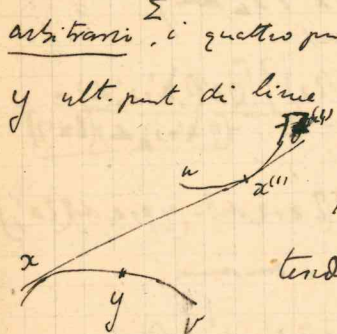 Σ
arbitrario, i quattro pu
y ult. punt di linee
u
x⁽¹⁾
x
tend
y
v